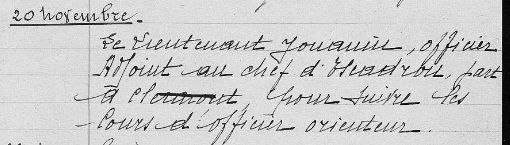 20 novembre.
Le Lieutenant Jouanin, officier
Adjoint au chef d'Escadron, part
à Clermont, pour suivre les
Cours d'officier orienteur.